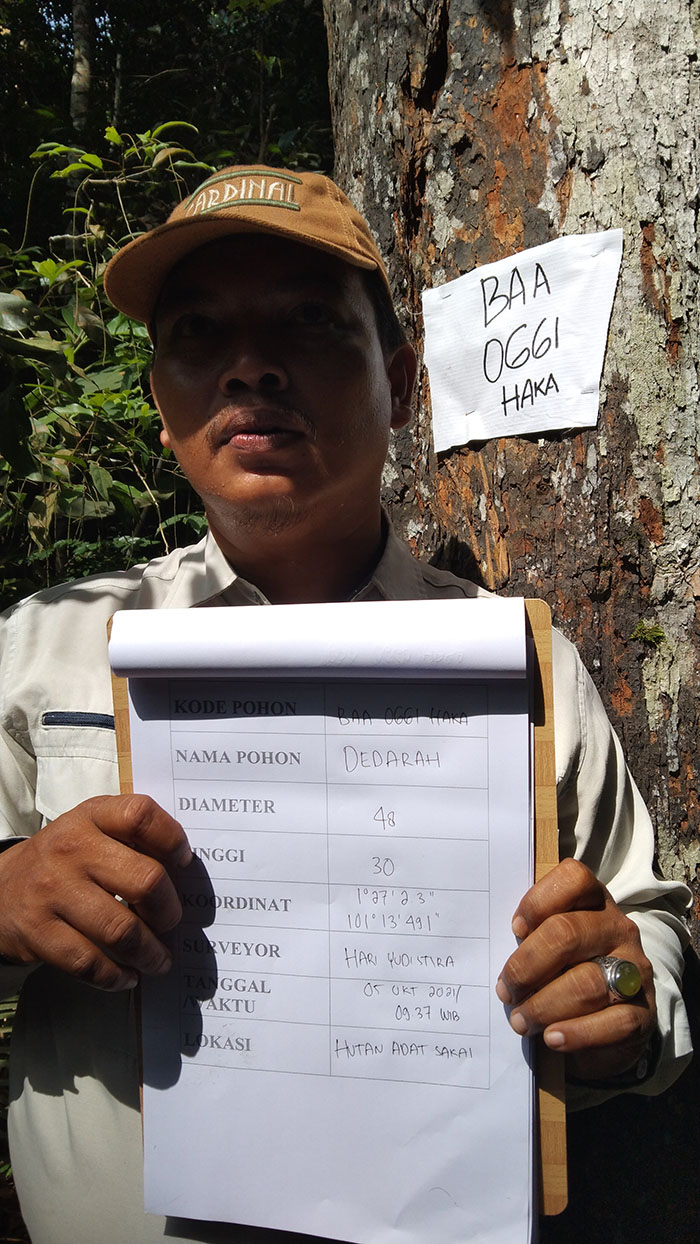 CARDINAL
BAA
0661
HAKA
KODE POHON BAA 0661 HAKA
NAMA POHON DEDARAH
DIAMETER 48
INGGI 30
KOORDINAT 1°27'23"
101°13'491"
SURVEYOR HARI YUDISTIRA
TANGGAL 05 OKT 2021/
/WAKTU 09.37 WIB
LOKASI HUTAN ADAT SAKAI